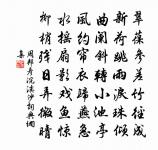 翠葆參差竹徑成
新荷跳雨淚珠傾
曲闌斜轉小池亭
風約帘衣歸燕急
水搖扇影戲魚驚
柳梢殘日弄微晴
周邦彥浣溪沙詞典網
集